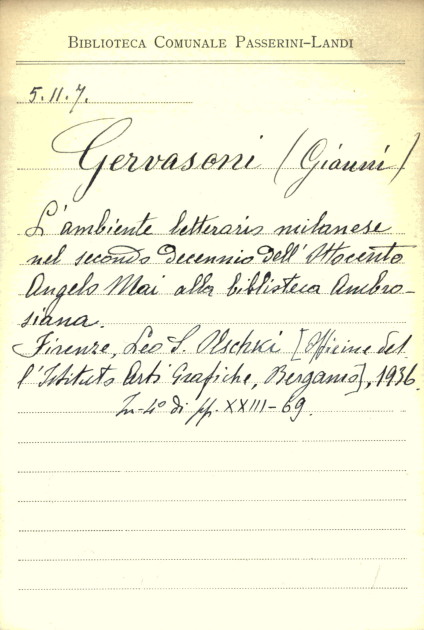 BIBLIOTECA COMUNALE PASSERINI-LANDI
5.11.7.
Gervasoni (Gianni)
L'ambiente letterario milanese
nel secondo decennio dell'Ottocento
Angelo Mai alla biblioteca Ambro-
siana.
Firenze, Leo S. Olschki [Officine del
l'Istituto Arti Grafiche, Bergamo], 1936.
In-4° di pp. XXIII-69.